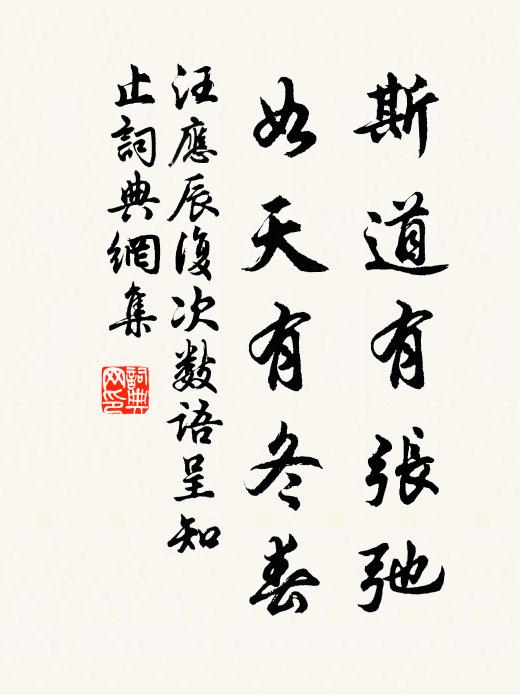 斯道有張弛
如天有冬春
汪應辰復次數語呈知
止詞典網集
詞典網印